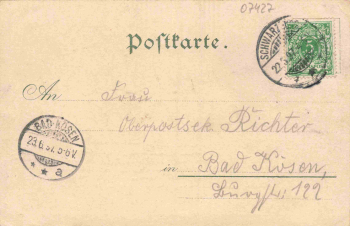 07427
Postkarte.
SCHWARZ
An Frau
Oberpostsek Richter
in Bad Kösen,
Burgstr. 122
BAD KÖSEN
23.6.97. 5-6 V.
* * a